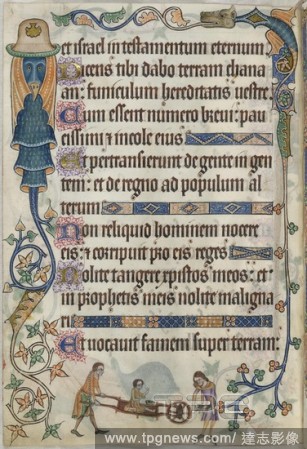 et israel in testamentum eternum.
Dicens tibi dabo terram chana
an: funiculum hereditatis uestre.
Cum essent numero breui: pau
cissimi ⁊ incole eius
Et pertransierunt de gente in gen
tem: et de regno ad populum al
terum
Non reliquid hominem nocere
eis: ⁊ corripuit pro eis reges
Nolite tangere xpistos meos: et
in prophetis meis nolite maligna
ri
Et uocauit famem super terram:
www.tpgnews.com/ 達志影像